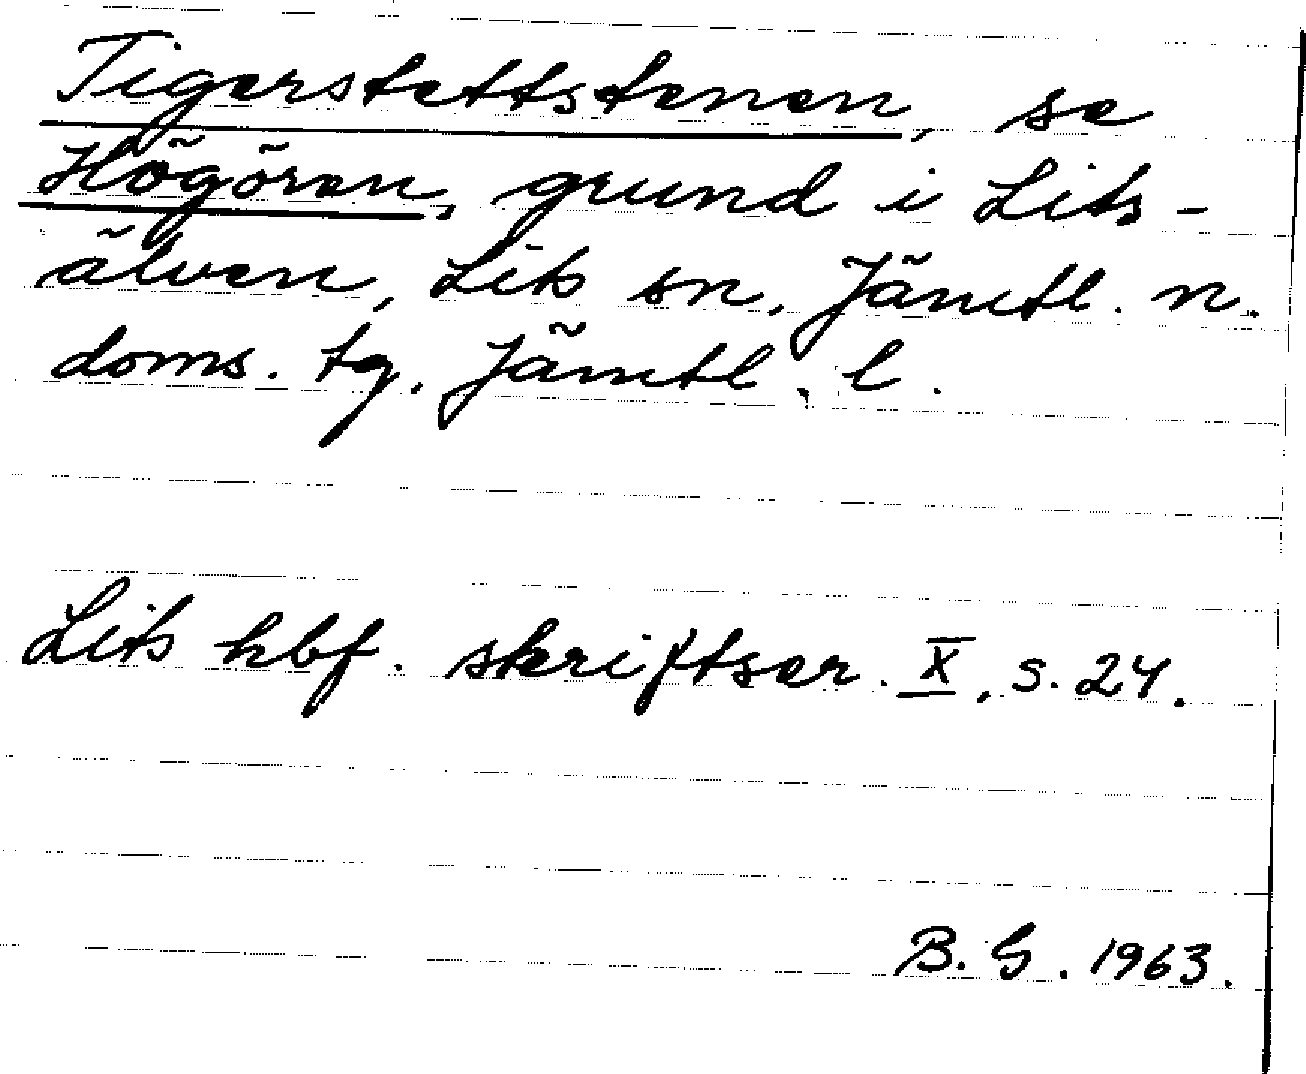 Tigerstettstenen, se
Högören, grund i Lits-
älven, Lits sn, Jämtl. n.
doms. tg. Jämtl. l.
Lits hbf. skriftser. X, s. 24.
B. G. 1963.